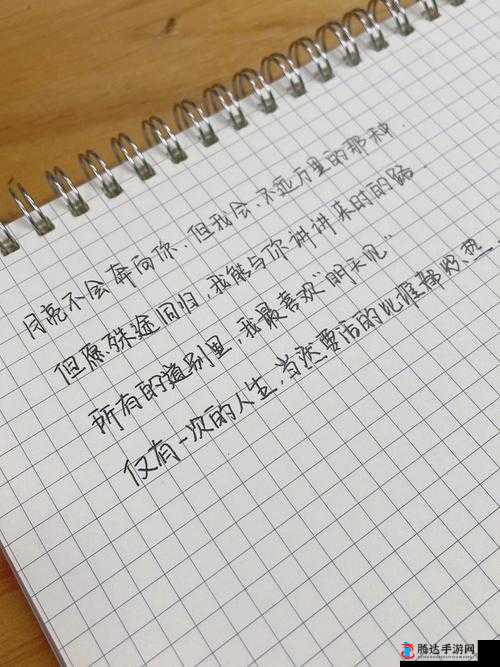 月亮不会奔向你、但我会、不远万里的那种.
但愿殊途同归，我能与你讲讲来时的路
所有的道别里，我最喜欢"明天见"
仅有一次的人生，当然要活的比谁都炽热
腾达手游网